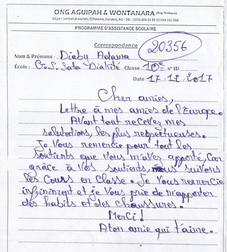 ONG AGUIPAH & WONTANARA
PROGRAMME D'ASSISTANCE SCOLAIRE
Correspondance
20356
Nom & Prénoms : Diaby Adama
Classe 10è
Date 17.12.2017
Cher amies,
Lettre à mes amies de l'Europe.
Avant tout recevez mes
salutations, les plus respectueuses.
Je vous remercie pour tout les
soutients que vous m'avez apporté, car
grâce à vos soutiens, nous suivons
les Cours en Classe. Je vous remercie
infiniment et je vous prie de m'apporter
des habits et des chaussures.
Merci!
A ton amie qui t'aime.